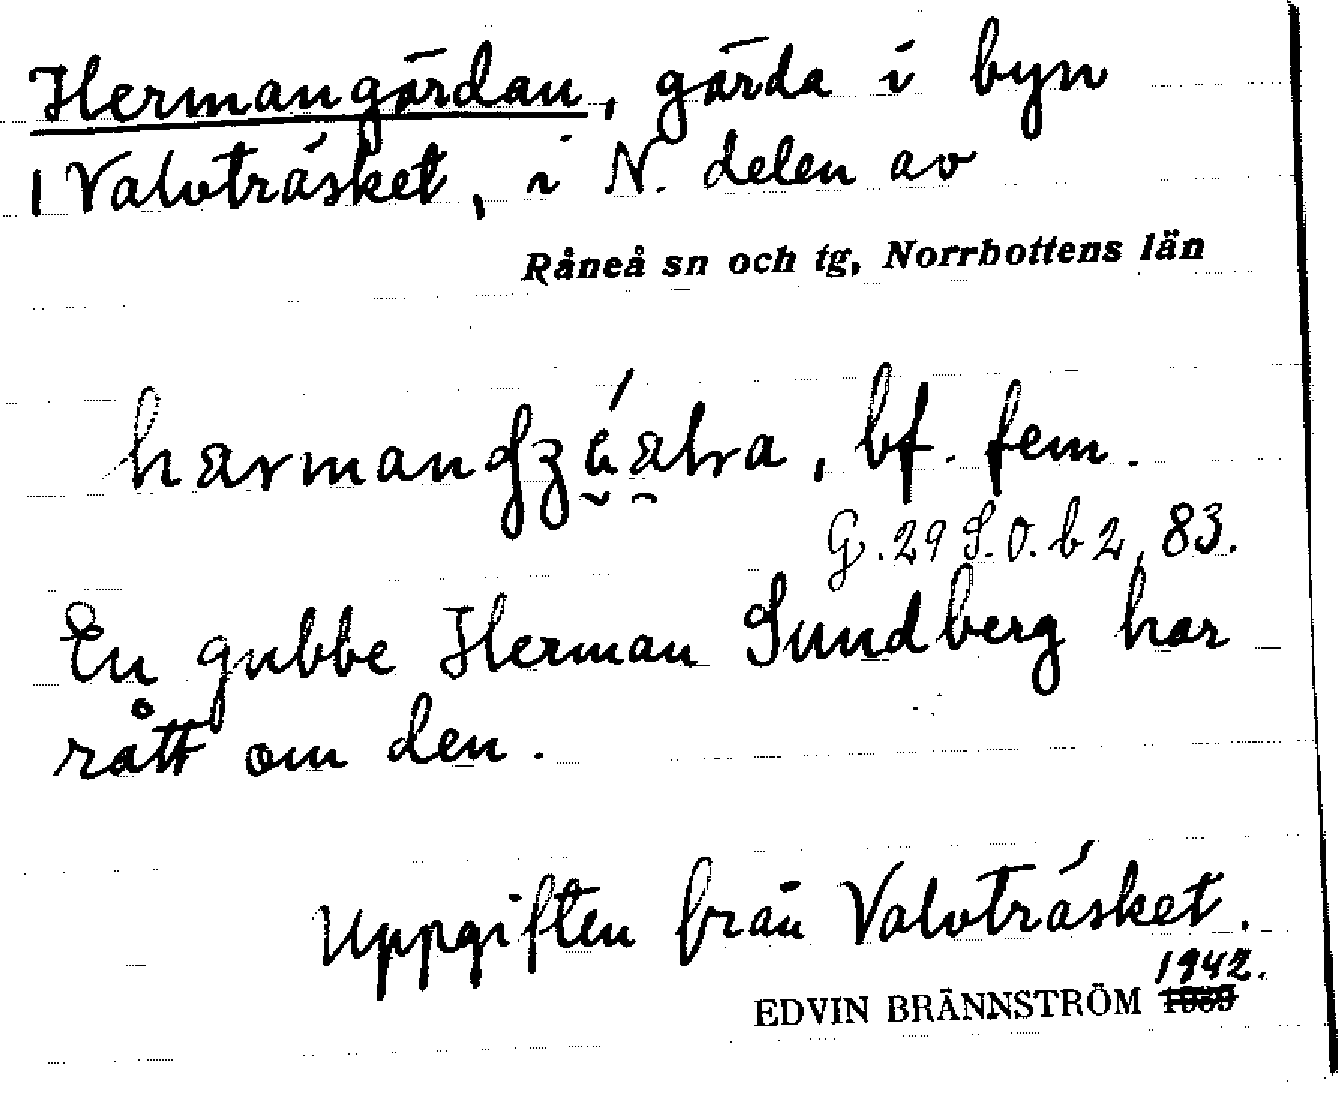 Hermangärdan, gärda i byn
1 Valvträsket, i N. delen av
Råneå sn och tg, Norrbottens län
bf. fem.
G. 29 S. O. b 2, 83.
En gubbe Herman Sundberg har
rått om den.
Uppgiften från Valvträsket.
1942.
EDVIN BRÄNNSTRÖM 1939